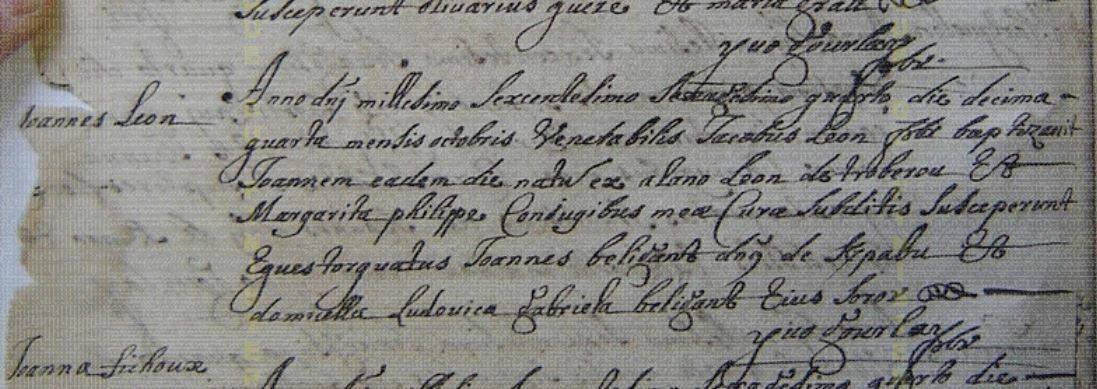 Susceperunt olivarius guere Et maria
yuo Gourlay
pbr.
Joannes Leon
Anno dnj millesimo Sexcentesimo quarto die decima
quarta mensis octobris Venerabilis Jacobus Leon pbr baptizauit
Joannem eadem die natu ex alano Leon de troberou Et
Margarita philippe Conjugibus meæ Curæ Subditis Susceperunt
Eques torquatus Joannes belizant dnj de Kpabu Et
domicella Ludovica Gabriela belizant Eius Soror
yuo Gourlay
pbr
Joanna fichoux
quarto die